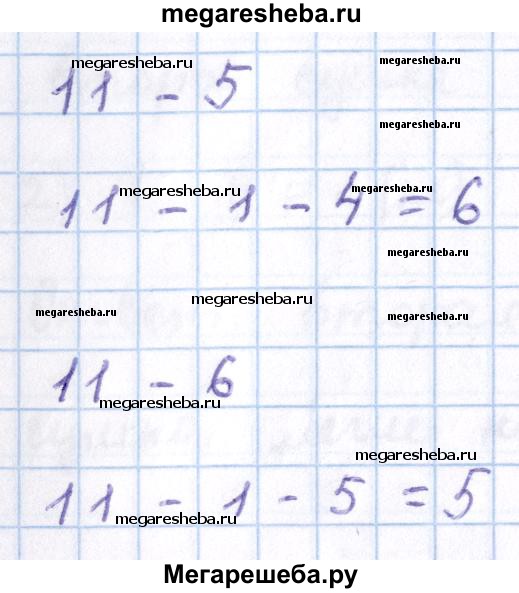 megaresheba.ru
megaresheba.ru megaresheba.ru
11 - 5
megaresheba.ru
megaresheba.ru megaresheba.ru
11 - 1 - 4 = 6
megaresheba.ru
megaresheba.ru
megaresheba.ru megaresheba.ru
11 - 6
megaresheba.ru
megaresheba.ru
11 - 1 - 5 = 5
megaresheba.ru
Мегарешеба.ру